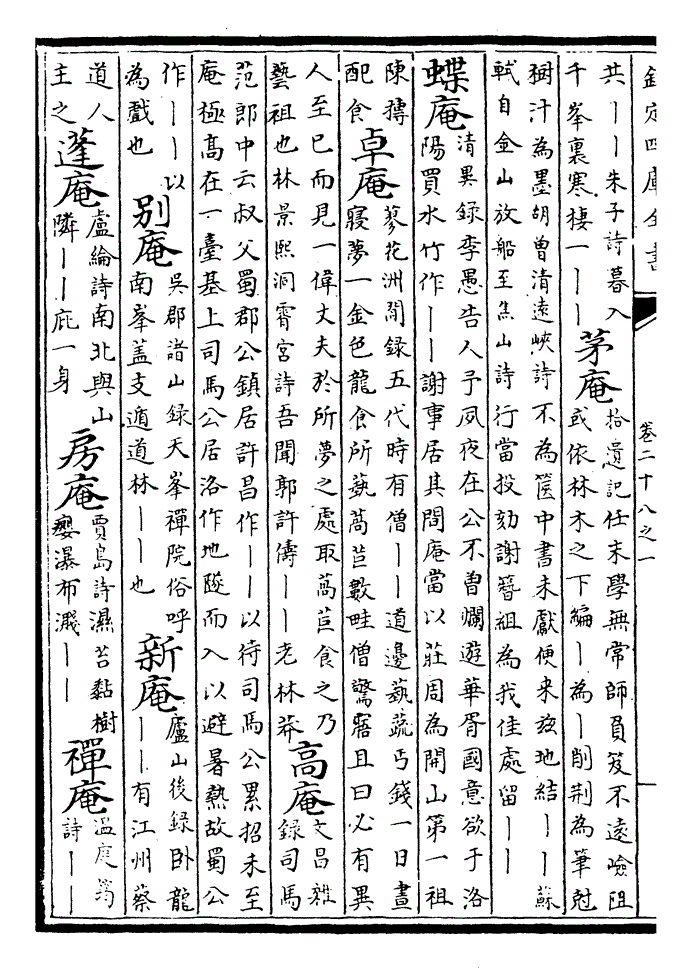 欽定四庫全書
卷二十八之一
共丨丨朱子詩暮入
千峯裏寒棲一丨丨
茅庵
拾遺記任末學無常師負笈不遠險阻
或依林木之下編丨為丨削荆為筆尅
樹汁為墨胡曾清遠峽詩不為篋中書未獻便来兹地結丨丨蘇
軾自金山放船至焦山詩行當投劾謝簪組為我佳處留丨丨
蝶庵
清異錄李愚告人予夙夜在公不曾爛遊華胥國意欲于洛
陽買水竹作丨丨謝事居其間庵當以莊周為開山第一祖
陳摶
配食
卓庵
蓼花洲閒録五代時有僧丨丨道邊蓺蔬丐錢一日晝
寢夢一金色龍食所蓺萵苣數畦僧驚寤且曰必有異
人至已而見一偉丈夫於所夢之處取萵苣食之乃
藝祖也林景熙洞霄宫詩吾聞郭許儔丨丨老林莽
高庵
文昌雜
録司馬
范郎中云叔父蜀郡公鎮居許昌作丨丨以待司馬公累招未至
庵極高在一臺基上司馬公居洛作地隧而入以避暑熱故蜀公
作丨丨以
為戲也
别庵
吳郡諸山録天峯禪院俗呼
南峯蓋支遁道林丨丨也
新庵
廬山後録卧龍
丨丨有江州蔡
道人
主之
蓬庵
盧綸詩南北與山
隣丨丨庇一身
房庵
賈島詩濕苔黏樹
癭瀑布濺丨丨
禪庵
温庭筠
詩丨丨